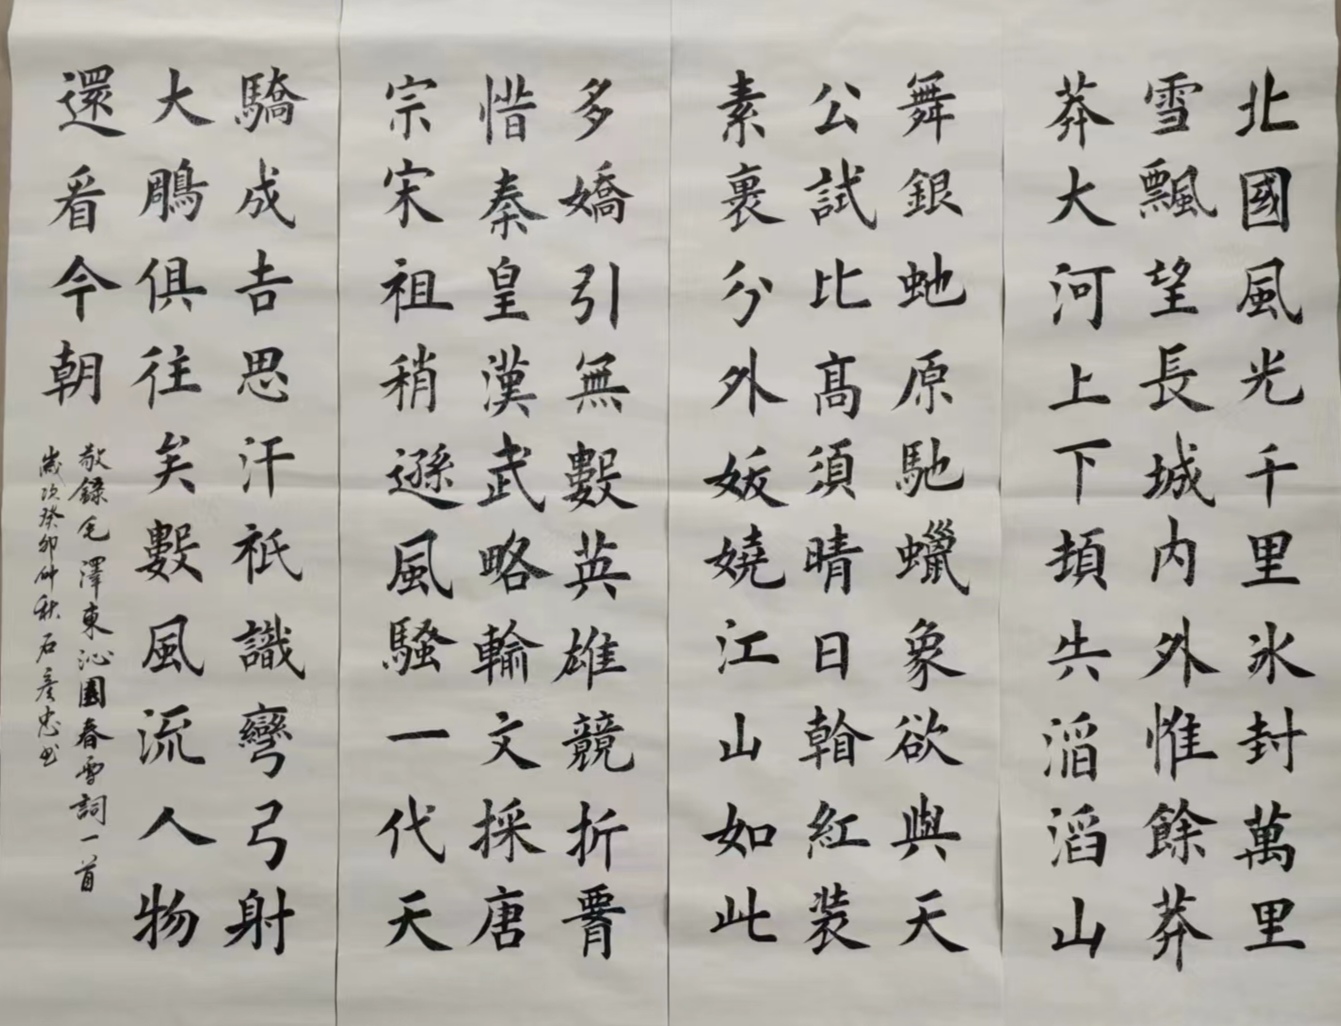 北國風光千里氷封萬里
雪飄望長城内外惟餘莽
莽大河上下頓失滔滔山
舞銀虵原馳蠟象欲與天
公試比髙須晴日看紅裝
素裹分外妖嬈江山如此
多嬌引無數英雄競折腰
惜秦皇漢武略輸文採唐
宗宋祖稍遜風騷一代天
驕成吉思汗祇識彎弓射
大鵰俱往矣數風流人物
還看今朝
敬錄毛澤東沁園春雪詞一首
歲次癸卯仲秋石彥忠书